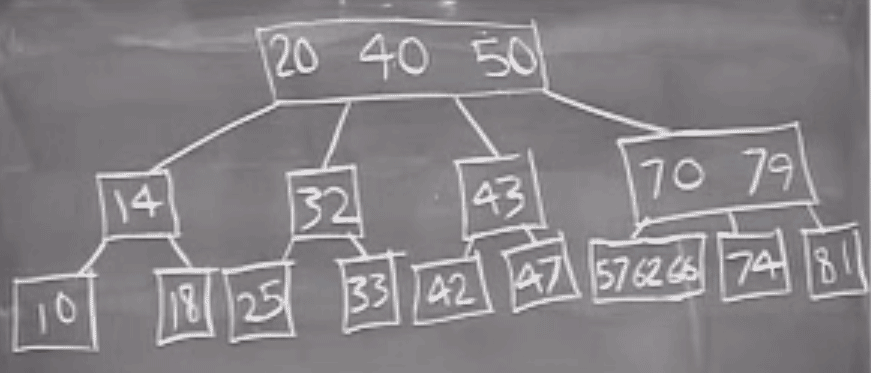 20 40 50
14 32 43 70 79
10 18 25 33 42 47 57 62 66 74 81